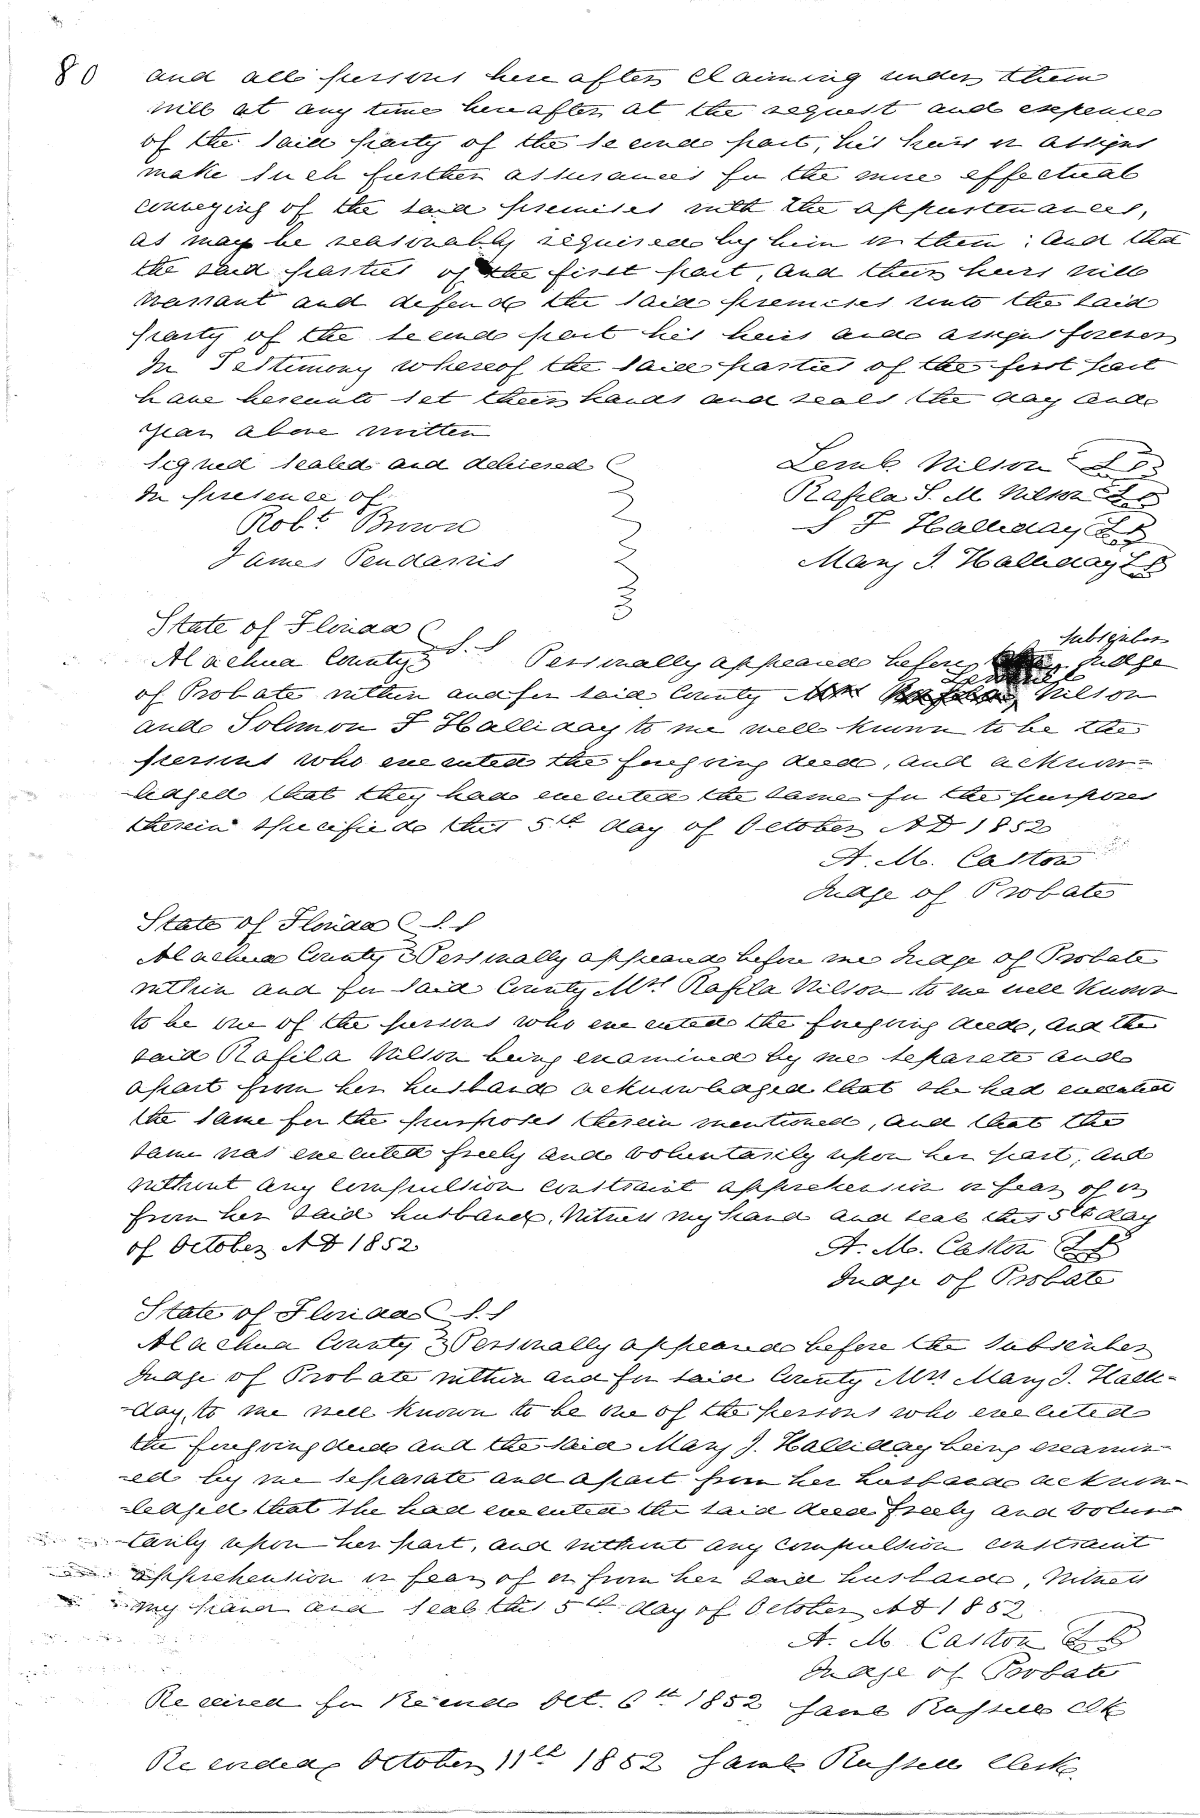 80
and all persons here after claiming under them
will at any time hereafter at the request and expense
of the said party of the second part, his heirs or assigns
make such further assurances for the more effectual
conveying of the said premises with the appurtenances,
as may be reasonably required by him or them; and that
the said parties of the first part, and their heirs will
warrant and defend the said premises unto the said
party of the second part his heirs and assigns forever
In Testimony whereof the said parties of the first part
have hereunto set their hands and seals the day and
year above written
Signed sealed and delivered
In presence of
Robt Brown
James Pendarvis
Leml. Wilson LS
Rafila S. M. Wilson LS
S F Halliday LS
Mary J. Halliday LS
State of Florida
Alachua County S.S Personally appeared before subscriber Judge
of Probate within and for said County Lemuel Wilson
and Solomon F Halliday to me well known to be the
persons who executed the foregoing deed, and acknow=
=ledged that they had executed the same for the purposes
therein specified this 5th day of October AD 1852
A. M. Caston
Judge of Probate
State of Florida S.S
Alachua County Personally appeared before me Judge of Probate
within and for said County Mrs Rafila Wilson to me well known
to be one of the persons who executed the foregoing deed, and the
said Rafila Wilson being examined by me separate and
apart from her husband acknowledged that she had executed
the same for the purposes therein mentioned, and that the
same was executed freely and voluntarily upon her part, and
without any compulsion constraint apprehension or fear of or
from her said husband, Witness my hand and seal this 5th day
of October AD 1852
A. M. Caston LS
Judge of Probate
State of Florida S.S
Alachua County Personally appeared before the Subscriber
Judge of Probate within and for said County Mrs. Mary J. Halli=
=day, to me well known to be one of the persons who executed
the foregoing deed and the said Mary J. Halliday being examin=
=ed by me separate and apart from her husband acknow=
=ledged that she had executed the said deed freely and volun=
tarily upon her part, and without any compulsion constraint
apprehension or fear of or from her said husband, Witness
my hand and seal this 5th day of October AD 1852
A. M Caston LS
Judge of Probate
Received for Record Oct. 6th 1852 Saml Russell Clk
Recorded October 11th 1852 Saml Russell Clerk.